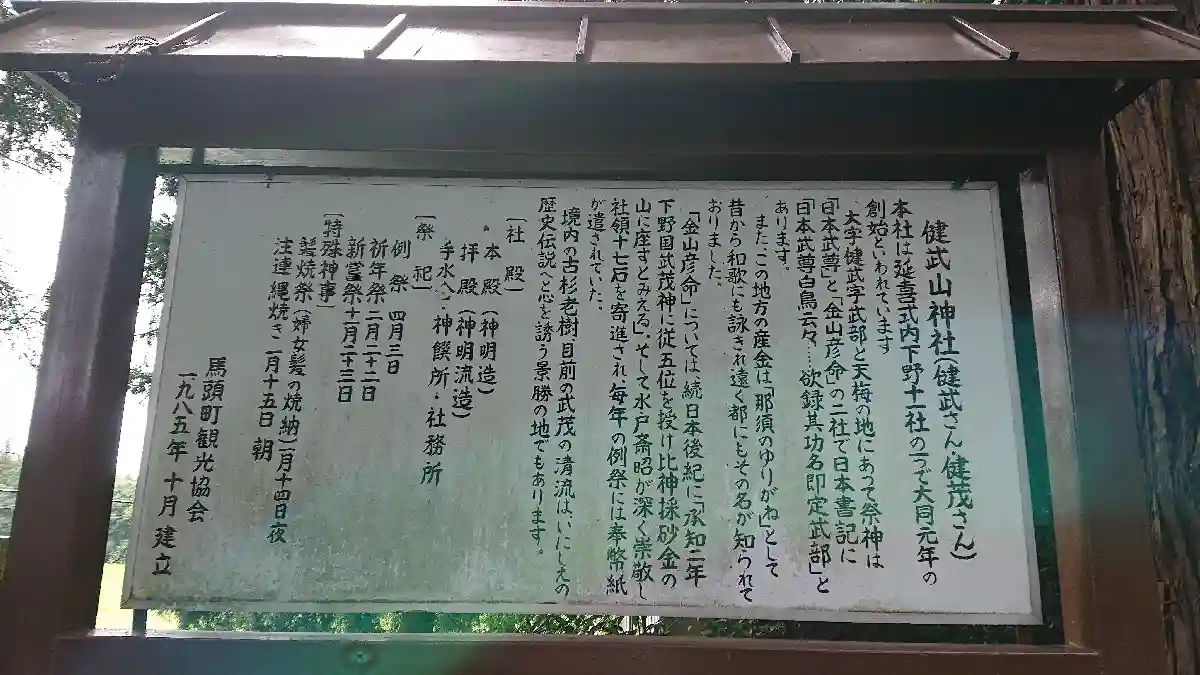 健武山神社(健武さん・健茂さん)
本社は延喜式内下野十一社の一つで大同元年の
創始といわれています
大字健武字武部と天梅の地にあって祭神は
「日本武尊」と「金山彦命」の二社で日本書記に
「日本武尊白鳥云々……欲録其功名即定武部」と
あります。
また、この地方の産金は「那須のゆりがね」として
昔から和歌にも詠まれ遠く都にもその名が知られて
おりました。
「金山彦命」については続日本後紀に「承知二年
下野国武茂神に従五位を授け比神採砂金の
山に座すとみえる」。そして水戸斎昭が深く崇敬し
社領十七石を寄進され毎年の例祭には奉幣紙
が遣されていた。
境内の古杉老樹、目前の武茂の清流は、いにしえの
歴史伝説へと心を誘う景勝の地でもあります。
〔社殿〕
・本殿(神明造)
拝殿(神明流造)
手水舎、神饌所・社務所
〔祭祀〕
例祭 四月三日
祈年祭 二月二十二日
新嘗祭 十一月二十三日
〔特殊神事〕
髪焼祭(婦女髪の焼納)一月十四日夜
注連縄焼き 一月十五日 朝
馬頭町観光協会
一九八五年十月建立